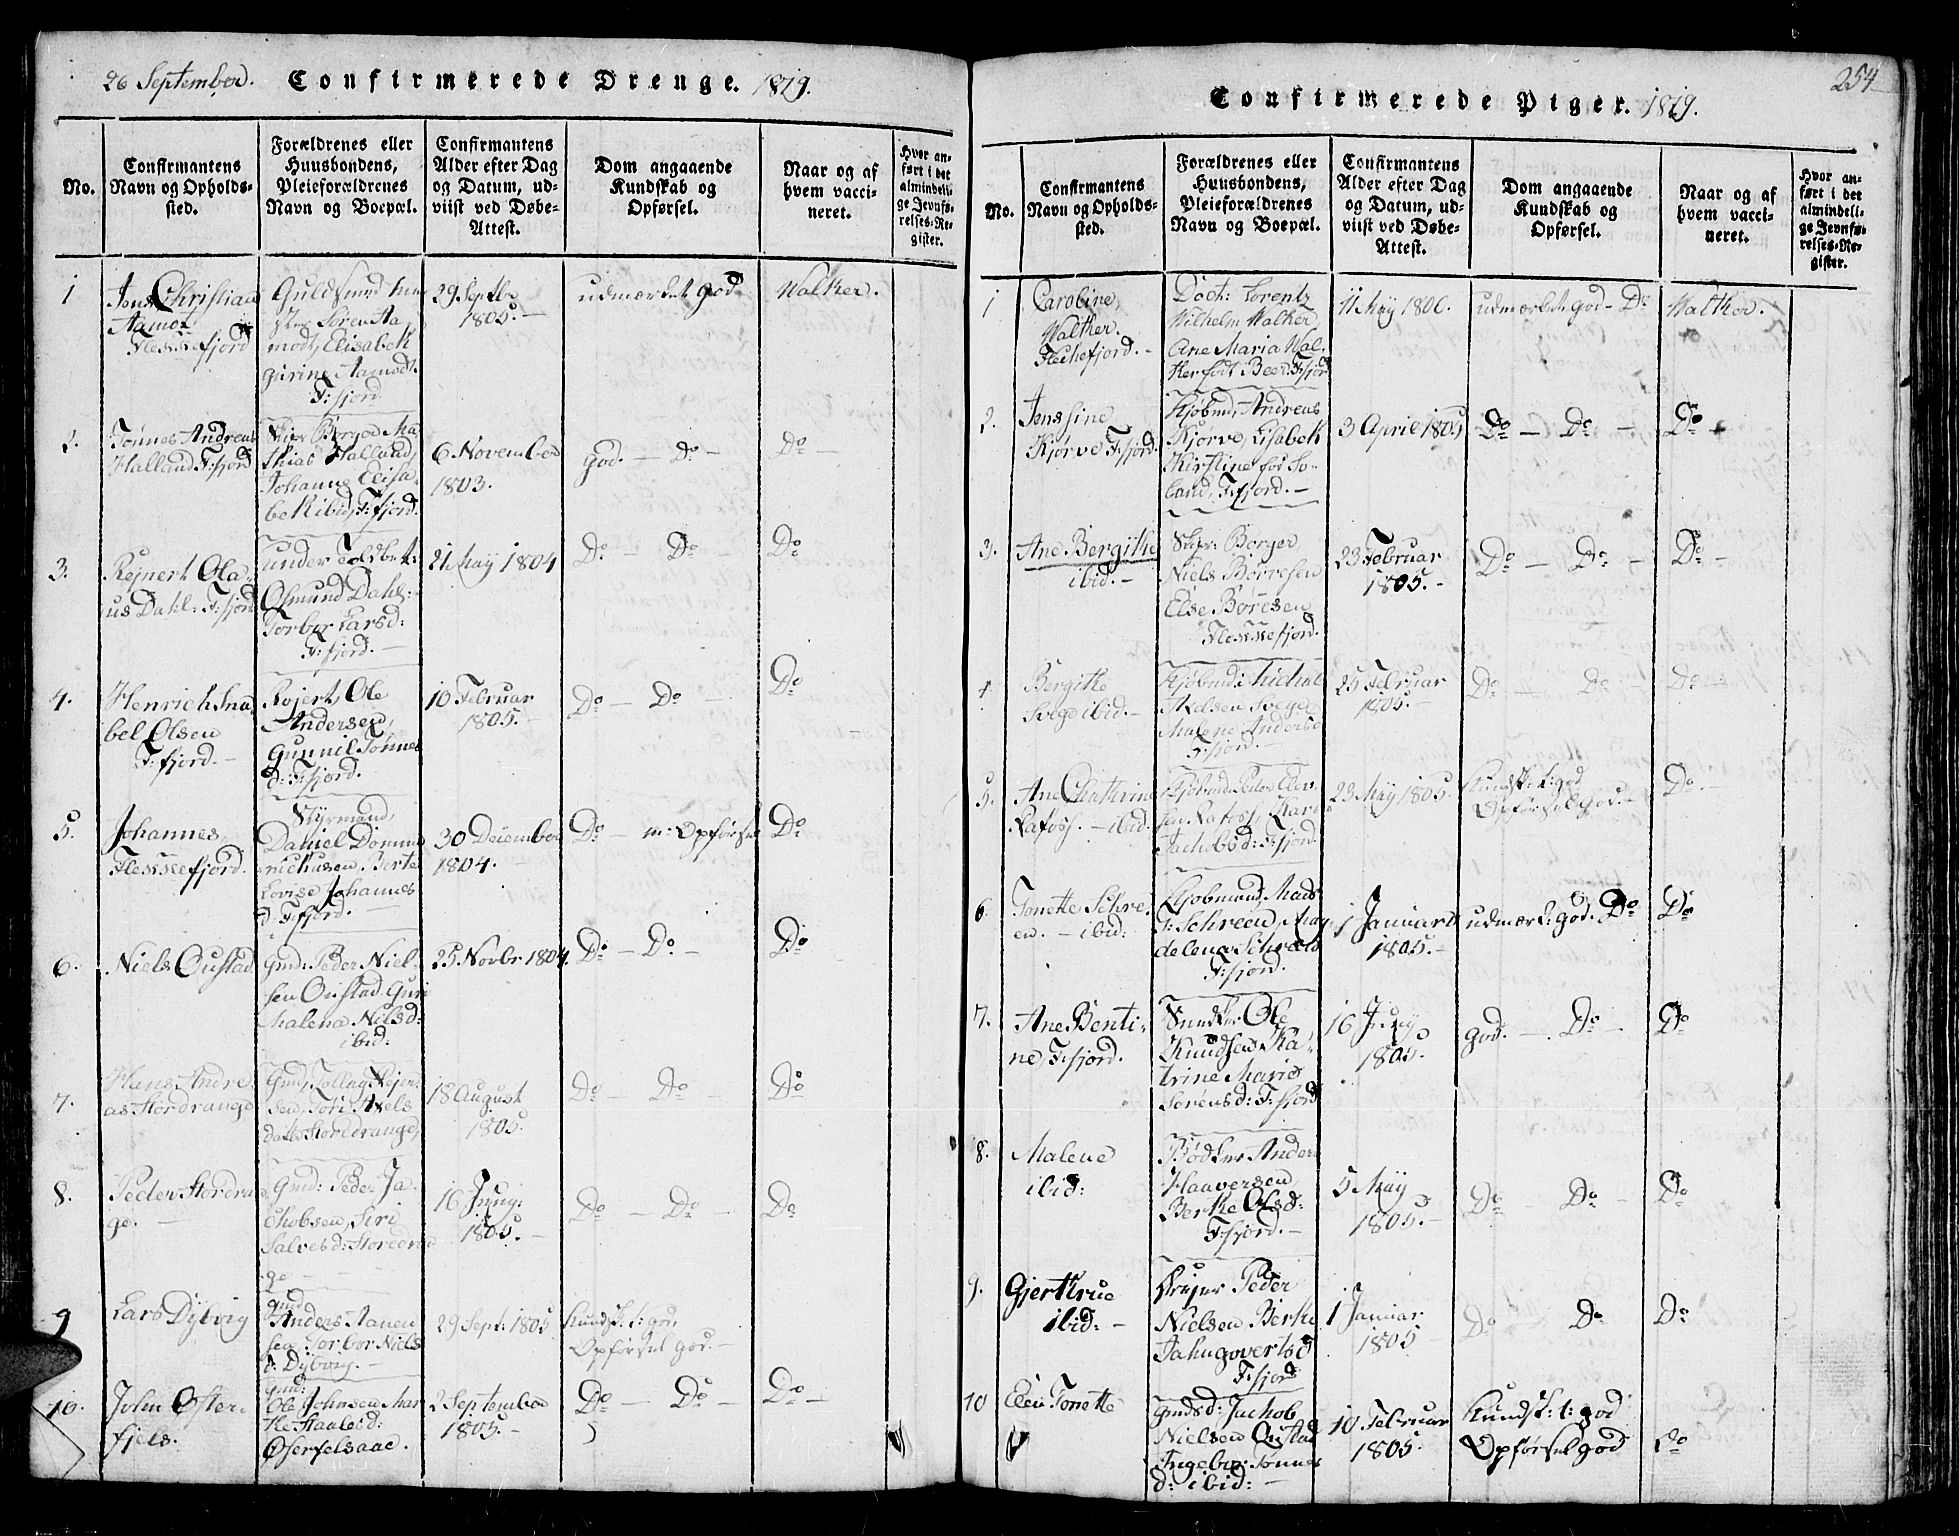 26 September. Confirmerede Drenge. 1819.
No.
Confirmantens
Navn og Opholds-
sted.
Forældrenes eller
Huusbondens,
Pleieforældrenes
Navn og Boepæl.
Confirmantens
Alder efter Dag
og Datum, ud-
viist ved Døbe-
Attest.
Dom angaaende
Kundskab og
Opførsel.
Naar og af
hvem vacci-
neret.
Hvor an-
ført i det
almindeli-
ge Jevnfø-
relses-Re-
gister.
1
Jens Christian
Aamot
Flekkefjord
Guldsmed
Søren Aa
modt, Elisabek
gurine Aamodt.
F:fjord
29 Septbr
1805.
udmærket god
Walker.
2.
Tønnes Andreas
Halland F:fjord
Skipr Berger Ma
thias Halland,
Johanne Elisa
bek ibid, F:fjord.
6 November
1803.
god. — Do —
Do —
3.
Rejnert Ola-
us Dahl: F:fjord
under Toldbet:
Osmund Dahl:
Torbor Larsd:
F:fjord. —
21 May 1804
Do — Do —
Do
4.
Henrich Sna
bel Olsen
F:fjord. —
Rojert, Ole
Andersen,
Gunnil Tønnes
d: F:fjord.
10 Februar
1805. —
Do — Do —
Do
5.
Johannes,
Flekkefjord.
Styrmand,
Daniel Domin
richusen, Berte
Lovise Johannes
d. F:fjord. —
30 December
1804.
Do — m: Opførsel
Do
6.
Niels Oustad
Gmd: Peder Niel-
sen Oustad. Guri
Malena Nilsd:
ibid:
25 Novbr 1804.
Do — Do —
Do
7.
Hans Andre
as Stordrange
Gmd, Tollag Rejer
sen, Tori Axels
datr Storedrange,
18 August
1805.
Do — Do —
Do
8.
Peder Stordran
ge. —
Gmd: Peder Ja
chobsen, Siri
Salvesd: Storedra
ge —
16 Juny
1805. —
Do — Do —
Do
9
Lars Dybvig
gmd
Anders Aanen
sen, Torbor Niels
d: Dybvig. —
29 Sept: 1805
Kundsk: t: god,
Opførsel god. —
10.
John Øster-
fjels.
gmd:
Ole Johnsen Mar
the Staalesd:
2 September
1805. —
Do — Do —
Do —
254
Confirmerede Piger. 1819.
No.
Confirmantens
Navn og Opholds-
sted.
Forældrenes eller
Huusbondens,
Pleieforældrenes
Navn og Boepæl.
Confirmantens
Alder efter Dag
og Datum, ud-
viist ved Døbe-
Attest.
Dom angaaende
Kundskab og
Opførsel.
Naar og af
hvem vacci-
neret.
Hvor an-
ført i det
almindeli-
ge Jevnfø-
relses-Re-
gister.
1
Caroline,
Walther.
Flekkefjord. —
Doct: Lorentz
Wilhelm Walker
Ane Maria Wal-
ker født Beer F:fjord
11 May 1806.
udmærket god — Do
Walther.
2.
Jenssine
Kjørve F:fjord.
Kjøbmd, Andreas
Kjørve, Lisabek
Kirstine før So-
land, F:fjord. —
3 April 1805
Do — Do —
Do —
3.
Ane Bergithe
ibid. —
Skpr: Borger
Niels Børresen
Else Børesen
Flekkefjord.
23 Februar
1805. —
Do — Do —
Do —
4
Bergithe
Svege ibid. —
Kjøbmd: Michal
Axelsen Svege
Malene Andersd
F:fjord. —
25 Februar
1805. —
Do — Do —
Do —
5.
Ane Chathrine
Rafoss. — ibid.
Kjøbmd, Peder Elev
sen Rafoss, Kari
Jachobsd: F:fjord.
23 May 1805.
Kundsk: t: god
Opførsel god. —
Do —
6.
Tonette Schre
en. — ibid:
Kjøbmand, Mads
F: Schreen, Mag
delena Schreen
F:fjord.
1 Januari
1805. —
udmærk: god. Do
Do
7.
Ane Benti-
ne, F:fjord.
Snedkr, Ole
Knudsen, Ka-
trine Marie
Sørensd: F:fjord
16 Juny
1805.
god. — Do —
Do
8.
Malene
ibid:
Bødker Anders
Haaversen
Berte Olsd:
F:fjord. —
5 May
1805. —
Do — Do —
Do
9.
Gjertrue
ibid: —
Peder
Nielsen Berte
F:fjord
1 Januar
1805 —
Do — Do
Do
10
Elen Tonette
Gmdsd: Jachob
Nielsen Oustad
Ingebor: Tønnes
d: ibid: —
10 Februar
1805. —
Kundsk: t: god
Opførsel god
Do